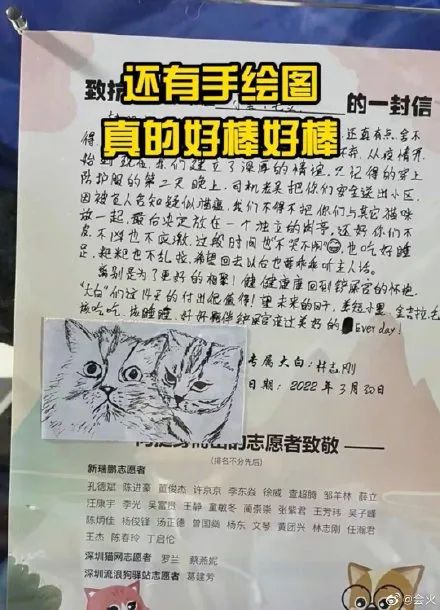 还有手绘图
真的好棒好棒
致抗
的一封信
还真有点舍不
得
从疫情开
始到现在，我们建立了深厚的情谊，只记得的穿上
防护服的第二天晚上，司机老吴把你们安全送出小区，
因被官人告知疑似猫瘟，我们不得不把你们与其它猫咪
放一起，最后决定放在一个独立的房号。还好你们不
皮、不凶也不应激，过段时间也“不哭不闹”，也吃好睡
足，粑粑也不乱拉，希望回去以后也要乖乖听主人话。
离别是为了更好的相聚！健健康康回到铲屎官的怀抱，
“大白”们这14天的付出便值得！望未来的日子，
该吃吃，该睡睡，好好陪伴铲屎官渡过美好的 Ever day！
专属大白：林志刚
日期：2022年3月20日
的志愿者致敬
（排名不分先后）
新瑞鹏志愿者
孔德斌 陈进豪 董俊杰 许京京 李东焱 徐威 查超腾 邹羊林 薛立
汪康宇 李光 吴富贵 王静 童敏冬 蔺崇崇 张紫君 王芳玮 吴子峰
陈炳佳 杨俊锋 汤正德 曾国焱 杨东 文琴 黄团兴 林志刚 任瀚君
王杰 陈春玲 丁启伦
深圳猫网志愿者 罗兰 蔡燕妮
深圳流浪狗驿站志愿者 葛建芳
@会火